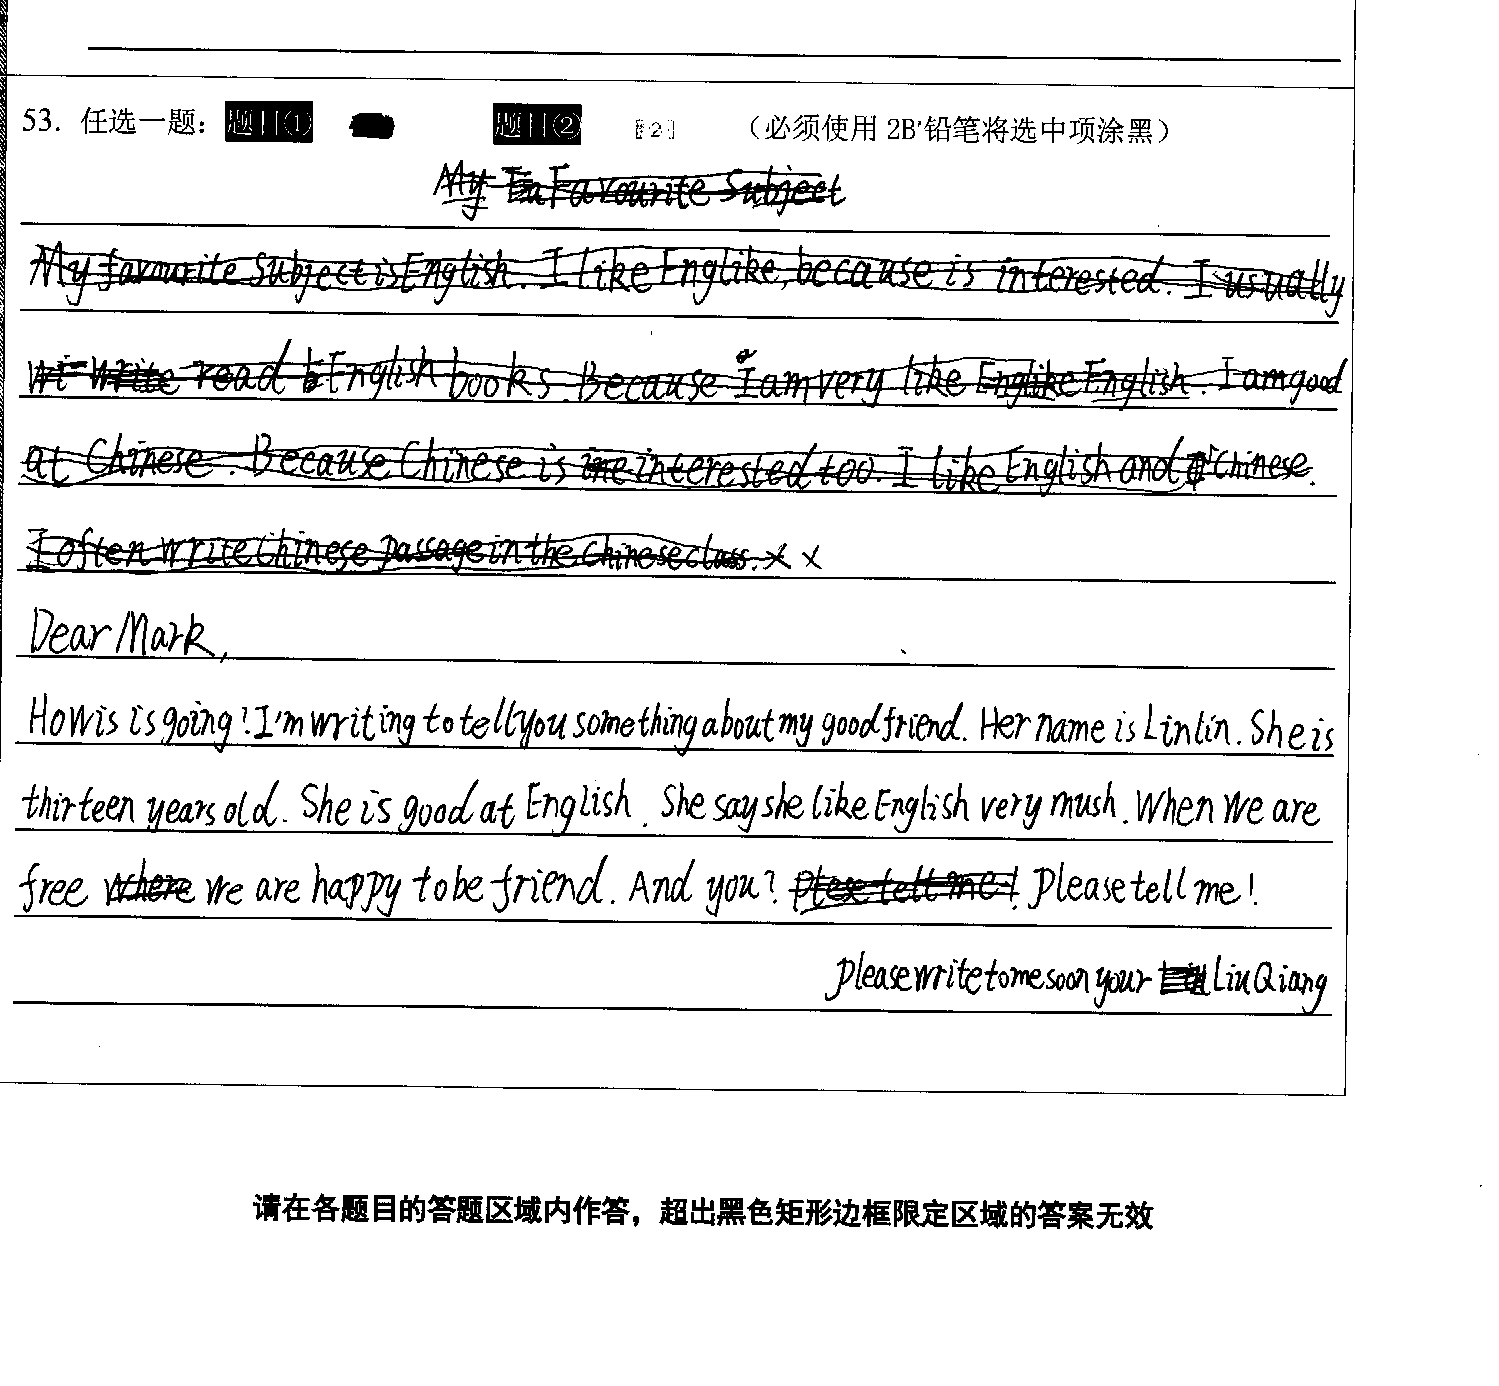 53. 任选一题： 题目① 题目② [2] （必须使用 2B 铅笔将选中项涂黑）
My Fa Favourite Subject
My favourite subject is English. I like Englike, because is interested. I usually
wi write read b English books. Because I am very like Englike English. I am good
at Chinese. Because Chinese is ine interested too. I like English and Chinese.
I often write Chinese passage in the Chinese class. x x
Dear Mark,
How is is going! I'm writing to tell you something about my good friend. Her name is Linlin. She is
thirteen years old. She is good at English. She say she like English very mush. When we are
free where we are happy to be friend. And you? Plese tell me! Please tell me!
please write to me soon your Liu Qiang
请在各题目的答题区域内作答，超出黑色矩形边框限定区域的答案无效